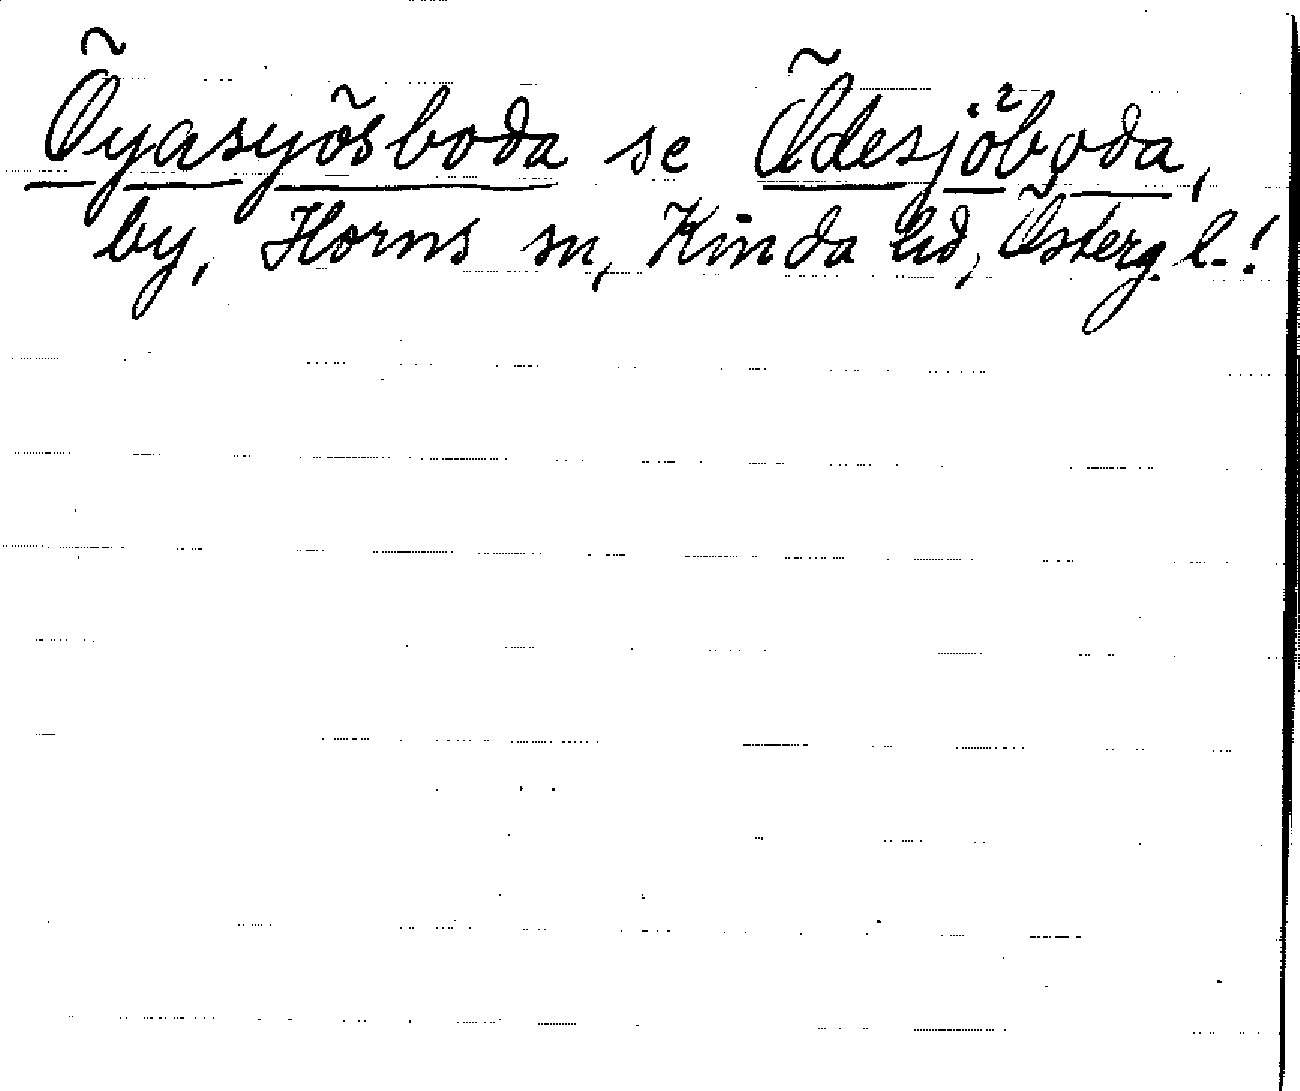 Öyasyösboda se Ödesjöboda,
by, Horns sn, Kinda hd, Österg. l.!